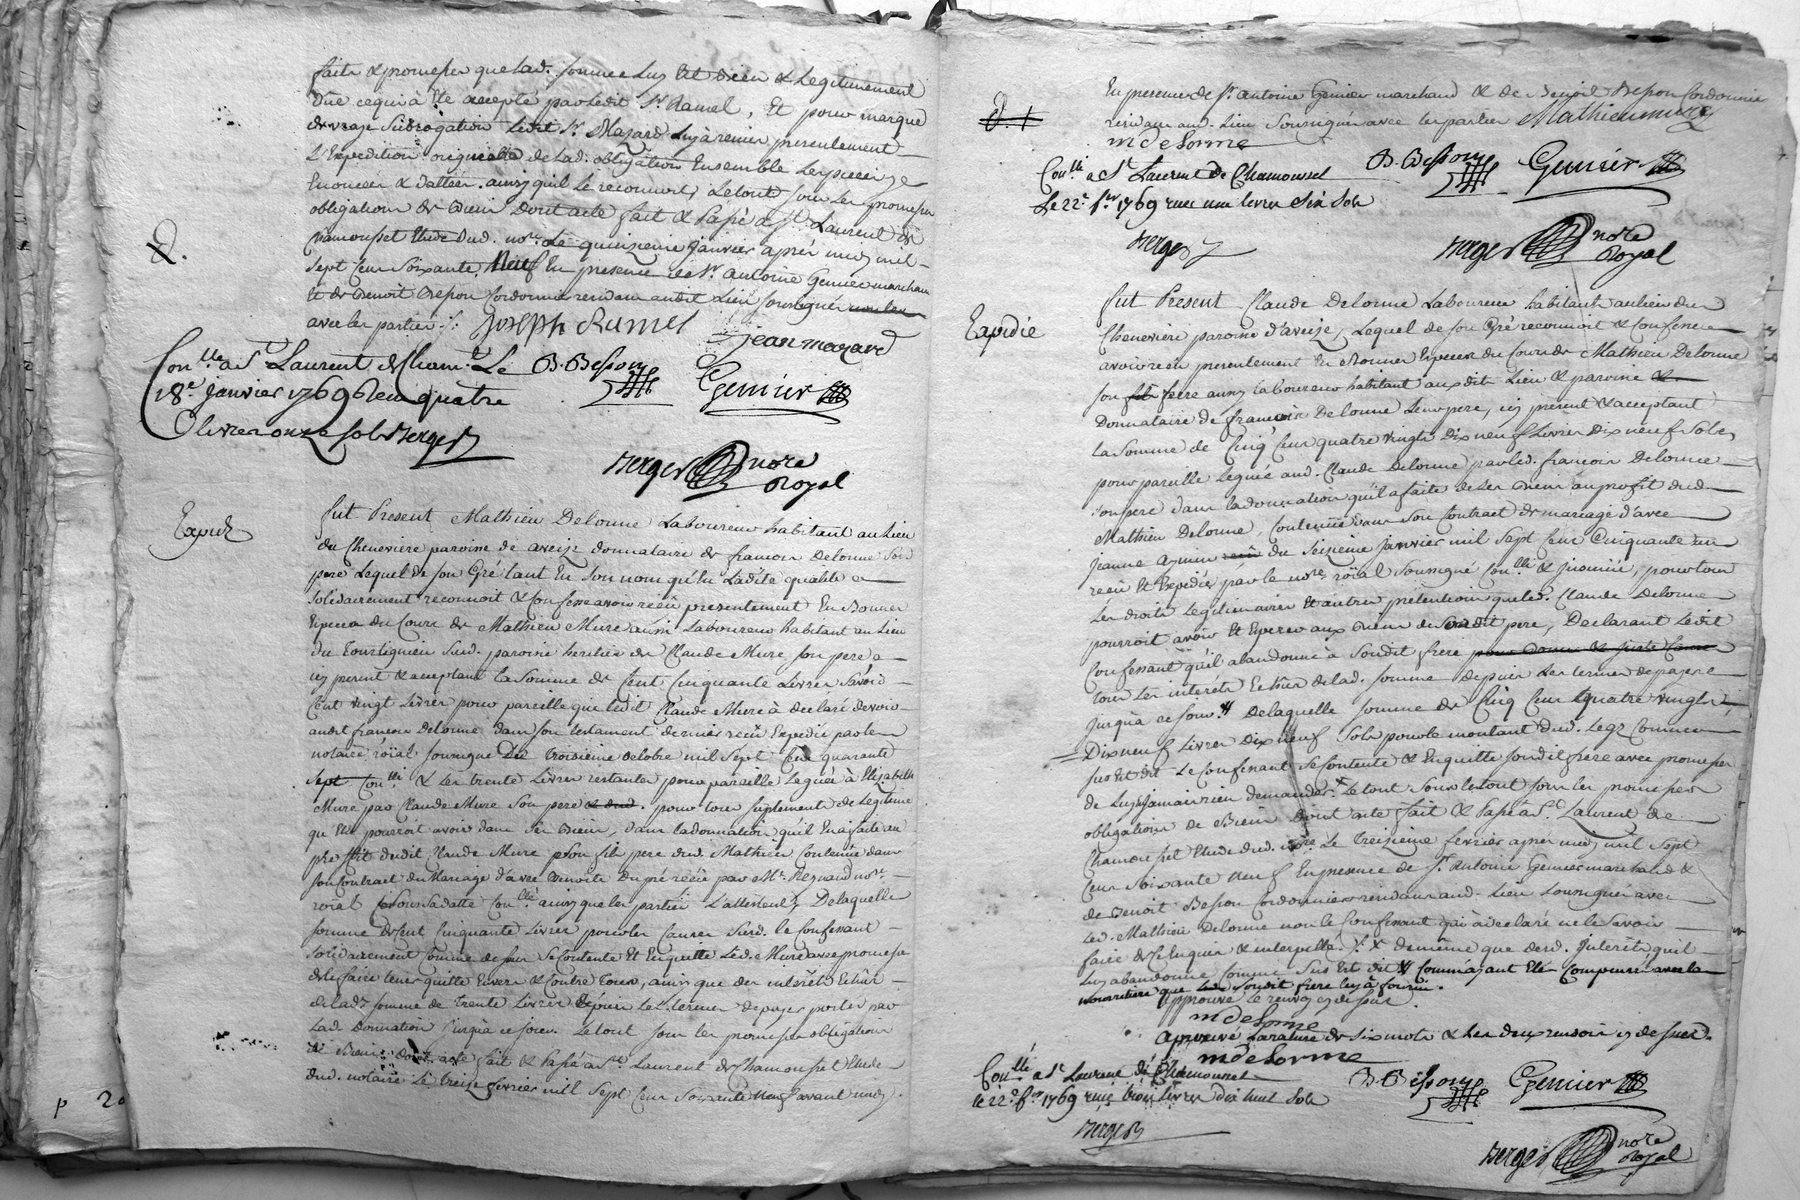 faite & promesses que lad. somme luy est deue & legitimement
due ce qui a été accepté par ledit Sr. Ramel, Et pour marque
de vraye subrogation ledit Sr. Mazard luy a remis presentement
L'Expedition originelle de lad. obligation Ensemble les pieces y
Enoncées & dattées. ainsy qu'il le reconnoit, le tout sous les promesses
obligations de Biens dont acte fait & Passé a St. Laurent de
Chamousset Etude dud. nore. Le quinzieme janvier après midy mil
Sept Cent Soixante Neuf En presence de Sr. Antoine Genier marchand
D.
Et de Benoit Besson Cordonnier residans audit Lieu soussignés
avec les parties ./.
Joseph Ramel
jean mazard
Conllé a St Laurent de Cham.t Le
18e. Janvier 1769 Reçu quatre
livres onze sols Berger
B. Besson
Genier
Berger nore Royal
Expedié
Fut Present Mathieu Delorme Laboureur habitant au Lieu
du Cheneviere paroisse de aveize donnataire de francois Delorme Son
pere Lequel de son Gré tant En son nom qu'En Ladite qualité
solidairement reconnoit & Confesse avoir reçu presentement En Bonnes
Especes du Cours de Mathieu Mure aussi Laboureur habitant au Lieu
du Fourtiquieu Sud. paroisse heritier de Claude Mure son pere
icy present & acceptant la Somme de Cent Cinquante Livres Savoir
Cent vingt Livres pour pareille que ledit Claude Mure à declaré devoir
audit francois Delorme dans son testament dernier reçu Expedié par le
notaire roïal soussigné Du troisieme octobre mil Sept Cent quarante
Sept Conllé & Les trente Livres restantes pour pareille Leguée à Elizabeth
Mure par Claude Mure Son pere & dud. pour tous suplement de Legitime
qu'Elle pourroit avoir dans ses Biens, dans la donnation qu'il En a faite au
proffit dudit Claude Mure son fils pere dud. Mathieu Contenüe dans
son Contract de Mariage d'avec Benoite Dupré reçu par Me. Reynaud nore.
roïal sous sa datte Conllé ainsy que les parties L'attestent, De laquelle
somme de Cent Cinquante Livres pour les Causes Susd. le Confessant
solidairement Comme dessus se Contente Et En quitte led. Mure avec promesse
de le faire tenir quitte Envers & Contre tous, ainsy que des intérêts Echus
de lad. somme de trente Livres depuis les termes de payes portés par
Lad. Donnation jusqu'à ce jour. Le tout sous les promesses obligations
de Biens dont acte fait & Passé a St. Laurent de Chamousset Etude
dud. notaire Le treize fevrier mil Sept Cent Soixante Neuf avant midy.
p 20
En presence de Sr. antoine Genier marchand & de Benoit Besson Cordonnier
residans aud. Lieu Soussignés avec les parties Mathieu mure
m delorme
Conllé a St Laurent de Chamousset
Le 22e. fer 1769 reçu une livre Six Sols
Berger
B. Besson
Genier
Berger nore Royal
Expedié
Fut Present Claude Delorme Laboureur habitant au lieu du
Cheneviere paroisse d'aveize, Lequel de son Gré reconnoit & Confesse
avoir reçu presentement En Bonnes Especes du Cours de Mathieu Delorme
son fils frere aussy laboureur habitant auxdits Lieu & paroisse &
Donnataire de francois Delorme Leur pere, icy present & acceptant
La Somme de Cinq Cent quatre vingts Dix neuf Livres Dix neuf Sols
pour pareille Leguée aud. Claude Delorme par led. francois Delorme
son pere dans la donnation qu'il a faite de ses Biens au proffit dud.
Mathieu Delorme, Contenüe dans son Contract de mariage d'avec
jeanne du Seizieme janvier mil Sept Cent Cinquante un
reçu Et Expedié par le nore. roïal Soussigné Conllé & jnsinüé, pour tous
Les droits Legitimaires Et autres prétentions que led. Claude Delorme
pourroit avoir Et Esperer aux Biens de Sondit pere, Declarant Ledit
Confessant qu'il abandonne à Sondit frere
tous Les interêts Echus de lad. somme depuis Les termes de payes
jusqu'à ce jour. De laquelle somme de Cinq Cent quatre vingts
Dix neuf Livres Dix neuf Sols pour le montant dud. Legs Comme
sus Est dit Le Confessant Se Contente & En quitte sondit frere avec promesse
de Luy jamais rien demander. Le tout sous les promesses
obligations de Biens dont acte fait & Passé a St. Laurent de
Chamousset Etude dud. nore. Le treizieme fevrier apres midy mil Sept
Cent Soixante neuf En presence de Sr. Antoine Genier marchand &
de Benoit Besson Cordonnier residans aud. Lieu Soussignés avec
Led. Mathieu Delorme non le Confessant qui à declaré ne le Savoir
faire de ce Enquis & interpellé. demême que desd. Interêts qu'il
Luy abandonne Comme Sus Est dit
nourriture que sondit frere luy à fourni.
approuvé le renvoy cy dessus.
m delorme
Aprouvé La rature de six mots & Les deux renvois cy dessus.
m delorme
Conllé a St Laurent de Chamousset
le 22e. fer 1769 reçu trois Livres dix huit Sols
Berger
B. Besson
Genier
Berger nore Royal